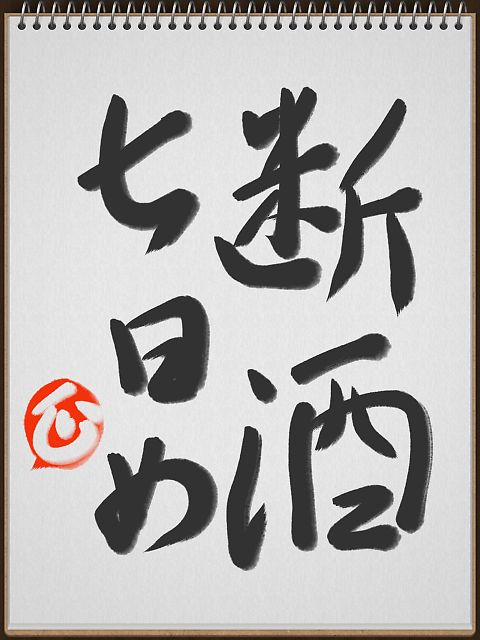 断酒
七日め